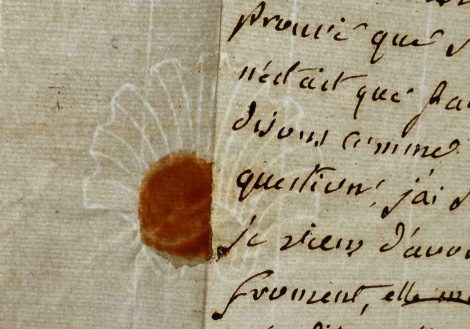 prouvé que
n'était que
disons comme
question, j'ai
je viens d'avo
froment, elle me